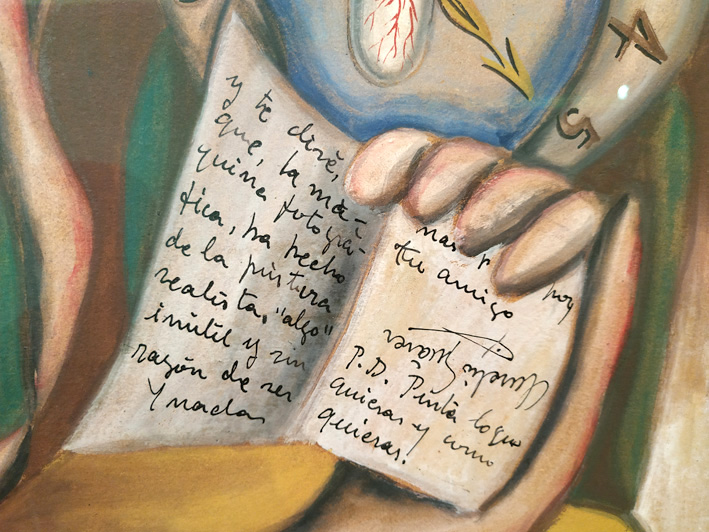 y te diré,
que, la má-
quina fotográ-
fica, ha hecho
de la pintura
realista, "algo"
inútil y sin
razón de ser
Y nada
mas p hoy
tu amigo
Aurelio Suárez
P.D. Pinta loque
quieras y como
quieras!
4
5